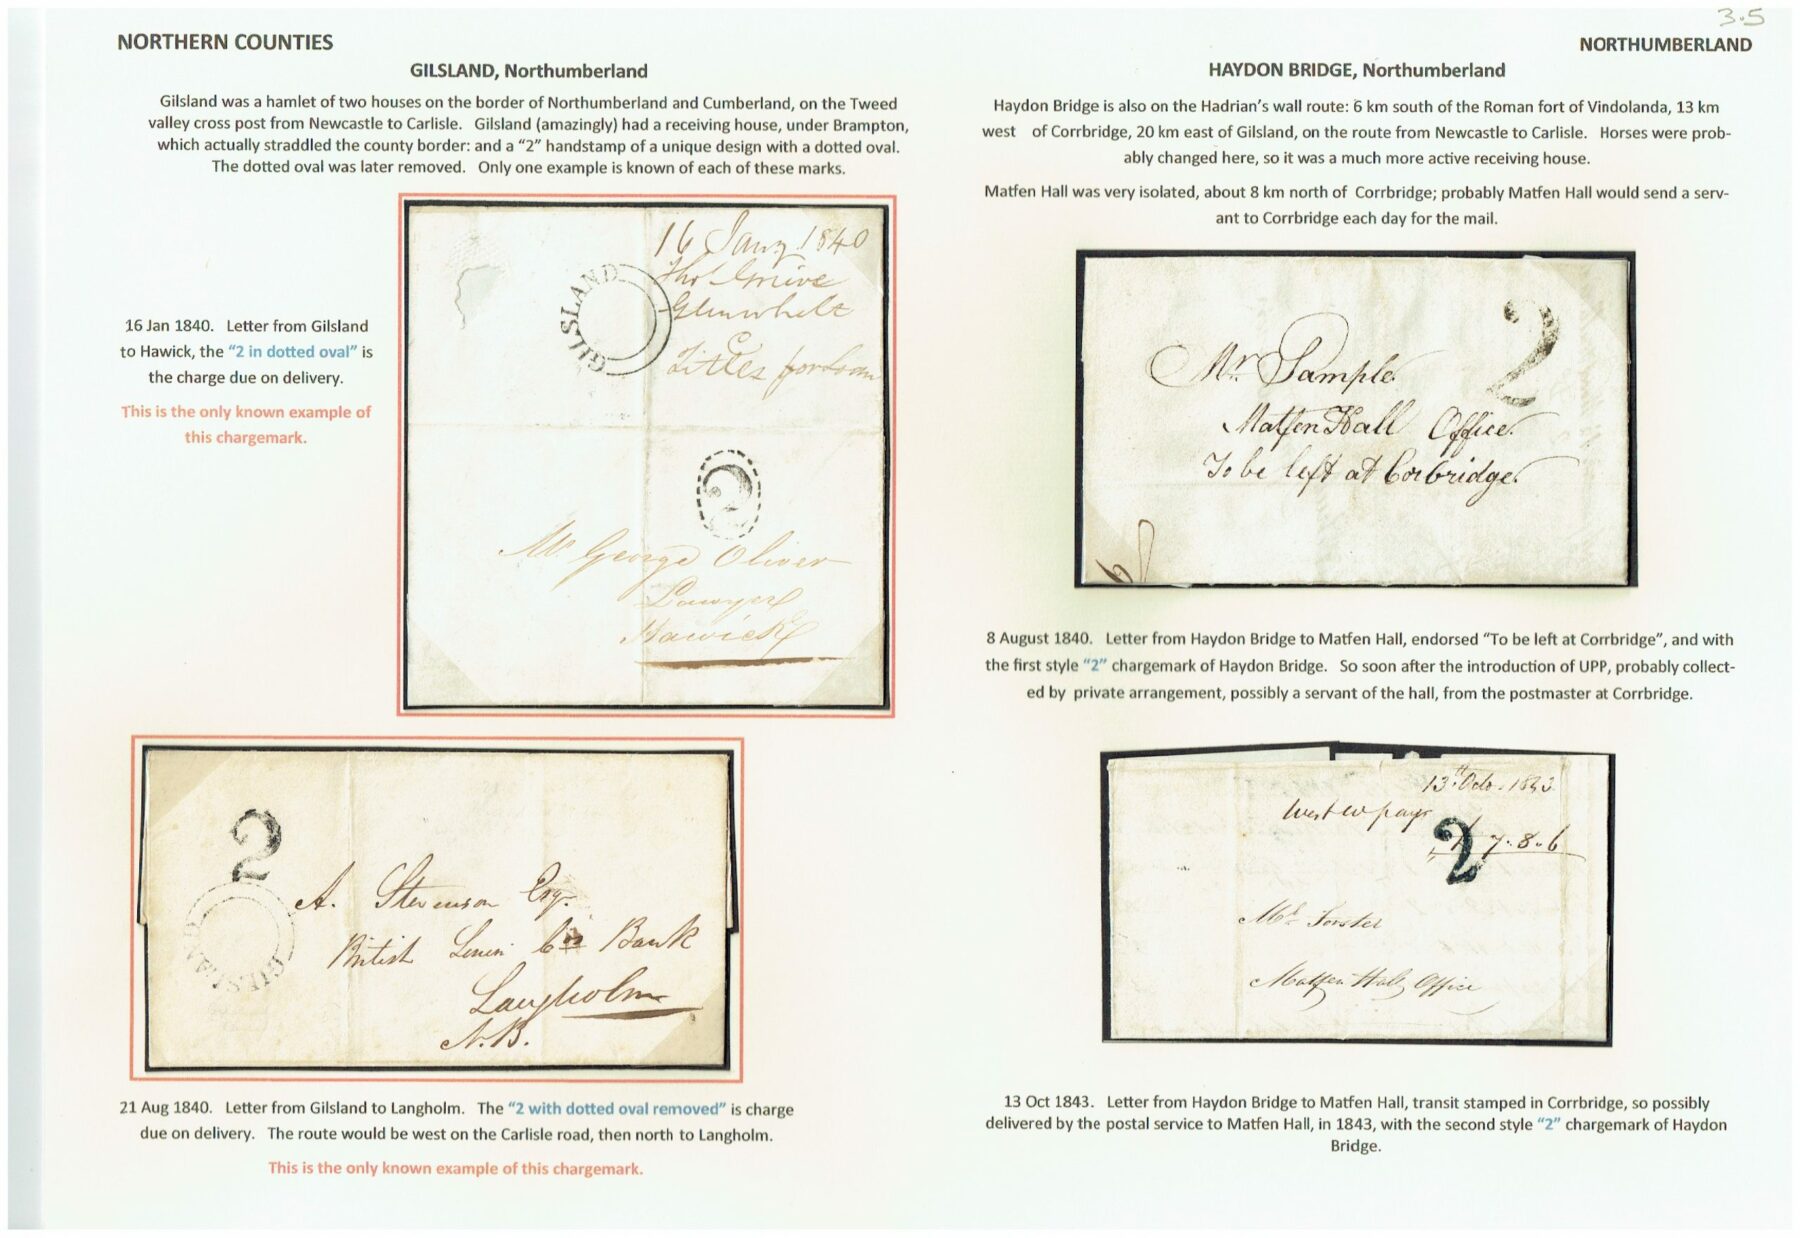 3.5
NORTHERN COUNTIES
NORTHUMBERLAND
GILSLAND, Northumberland
Gilsland was a hamlet of two houses on the border of Northumberland and Cumberland, on the Tweed
valley cross post from Newcastle to Carlisle. Gilsland (amazingly) had a receiving house, under Brampton,
which actually straddled the county border: and a “2” handstamp of a unique design with a dotted oval.
The dotted oval was later removed. Only one example is known of each of these marks.
16 Jan 1840. Letter from Gilsland
to Hawick, the “2 in dotted oval” is
the charge due on delivery.
This is the only known example of
this chargemark.
16 Jany 1840
Glenwhelt
GILSLAND
2
Mr George Oliver
Lawyer
Hawick
2
GILSLAND
A. Stevenson Esq.
British Linen Co Bank
Langholm
N.B.
21 Aug 1840. Letter from Gilsland to Langholm. The “2 with dotted oval removed” is charge
due on delivery. The route would be west on the Carlisle road, then north to Langholm.
This is the only known example of this chargemark.
HAYDON BRIDGE, Northumberland
Haydon Bridge is also on the Hadrian’s wall route: 6 km south of the Roman fort of Vindolanda, 13 km
west of Corrbridge, 20 km east of Gilsland, on the route from Newcastle to Carlisle. Horses were prob-
ably changed here, so it was a much more active receiving house.
Matfen Hall was very isolated, about 8 km north of Corrbridge; probably Matfen Hall would send a serv-
ant to Corrbridge each day for the mail.
2
Mr. Sample
Matfen Hall Office.
To be left at Corbridge.
8 August 1840. Letter from Haydon Bridge to Matfen Hall, endorsed “To be left at Corrbridge”, and with
the first style “2” chargemark of Haydon Bridge. So soon after the introduction of UPP, probably collect-
ed by private arrangement, possibly a servant of the hall, from the postmaster at Corrbridge.
13th Octo. 1843
7.8.6
2
Mr Forster
Matfen Hall Office
13 Oct 1843. Letter from Haydon Bridge to Matfen Hall, transit stamped in Corrbridge, so possibly
delivered by the postal service to Matfen Hall, in 1843, with the second style “2” chargemark of Haydon
Bridge.